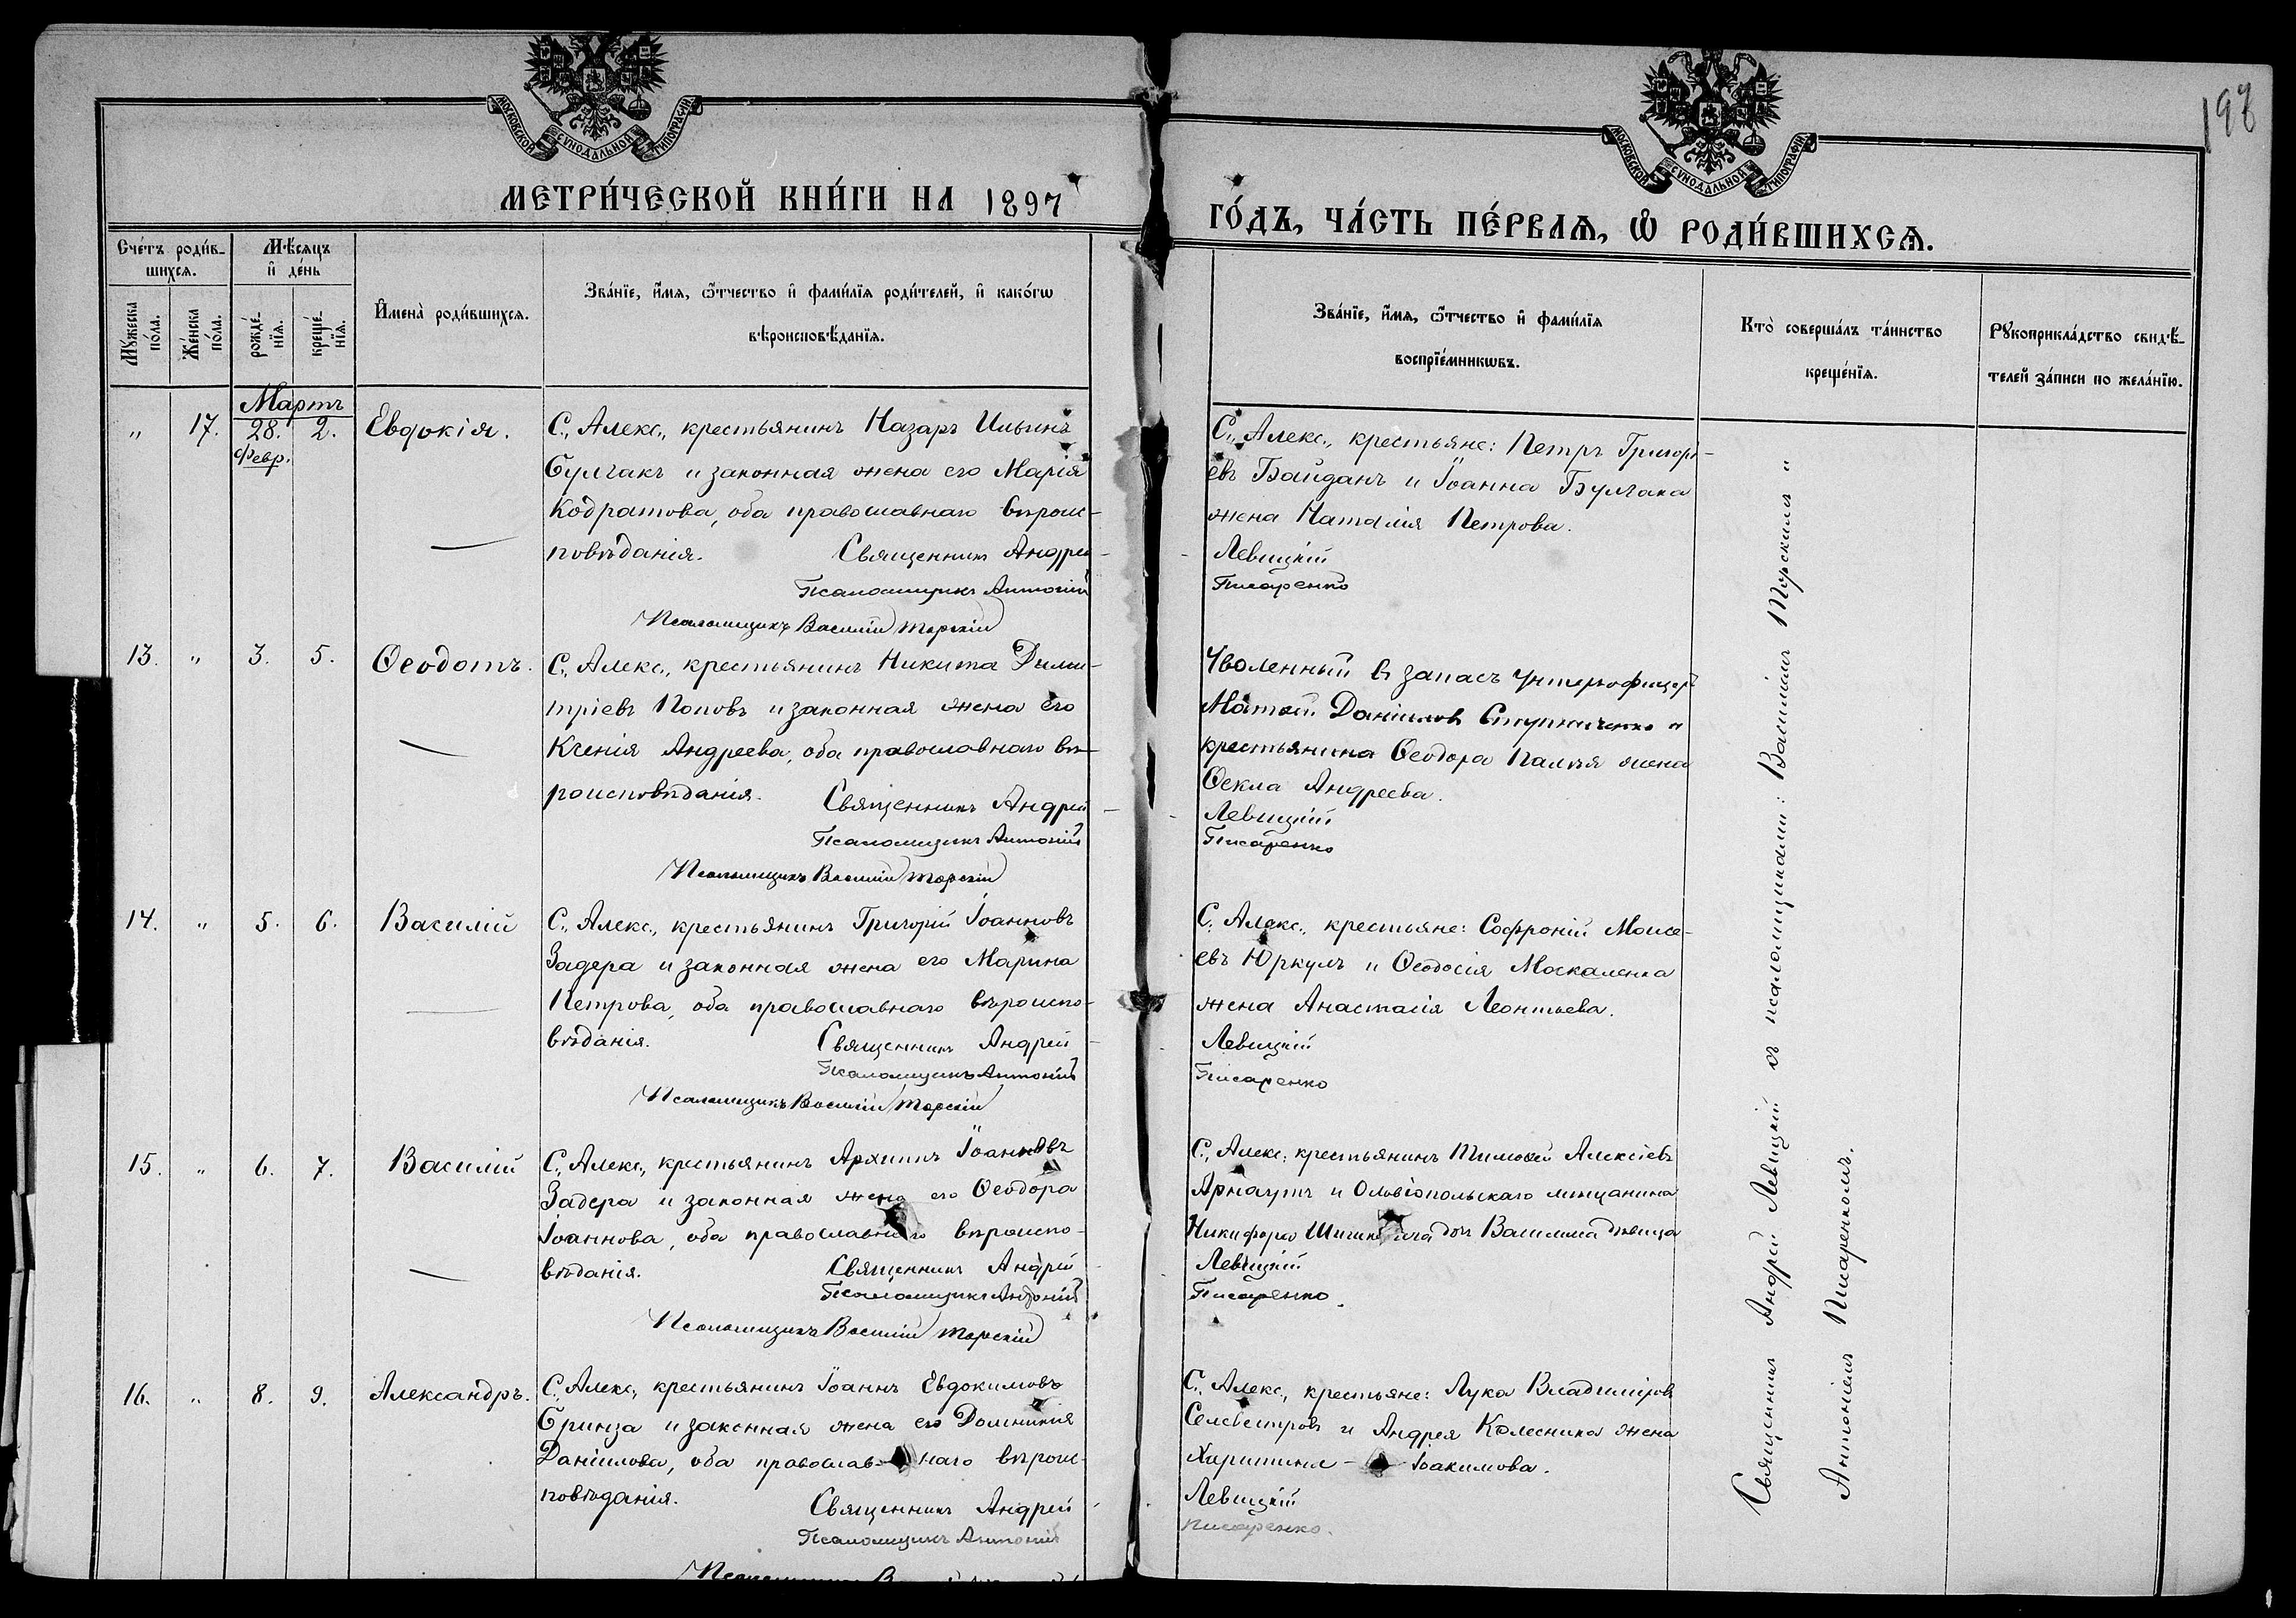 198
МОСКОВСКОЙ СѴНОДАЛЬНОЙ ТИПОГРАФІИ
МОСКОВСКОЙ СѴНОДАЛЬНОЙ ТИПОГРАФІИ
МЕТРИ́ЧЕСКОЙ КНИ́ГИ НА 1897
ГО́ДЪ, ЧА́СТЬ ПЕ́РВАѦ, Ѡ҆ РОДИ́ВШИХСѦ.
Сче́тъ роди́в-
шихсѧ.
Мѣ́сѧцъ
и҆ де́нь
Мꙋ́жеска
по́ла.
Же́нска
по́ла.
рожде́-
нїѧ.
креще́-
нїѧ.
И҆мена̀ роди́вшихсѧ.
Зва́нїе, и҆́мѧ, ѻ҆́тчество и҆ фами́лїѧ роди́телей, и҆ како́гѡ
вѣроисповѣ́данїѧ.
Зва́нїе, и҆́мѧ, ѻ҆́тчество и҆ фами́лїѧ
воспрїе́мникѡвъ.
Кто̀ соверша́лъ та́инство
креще́нїѧ.
Рꙋкоприкла́дство свидѣ́-
телей за́писи по жела́нїю.
Мартъ
„ 17. 28. 2. Евдокія.
Февр.
С., Алекс., крестьянинъ Назаръ Ильинъ
Булгакъ и законная жена его Марія
Кодратова, оба православнаго вѣроис-
повѣданія. Священникъ Андрей
Псаломщикъ Антоній
Псаломщикъ Василій Торскій
С., Алекс., крестьяне: Петръ Григорі-
евъ Байданъ и Іоанна Булгака
жена Наталія Петрова.
Левицкій
Писаренко
13. „ 3. 5. Ѳеодотъ.
С., Алекс., крестьянинъ Никита Дими-
тріевъ Поповъ и законная жена его
Ксенія Андреева, оба православнаго вѣ-
роисповѣданія. Священникъ Андрей
Псаломщикъ Антоній
Псаломщикъ Василій Торскій
Уволенный въ запасъ унтерофицеръ
Матѳей Даніиловъ и
крестьянина Ѳеодора жена
Ѳекла Андреева.
Левицкій
Писаренко
14. „ 5. 6. Василій
С., Алекс., крестьянинъ Григорій Іоанновъ
Задера и законная жена его Марина
Петрова, оба православнаго вѣроиспо-
вѣданія. Священникъ Андрей
Псаломщикъ Антоній
Псаломщикъ Василій Торскій
С., Алекс., крестьяне: Софроній Моисе-
евъ Юркулъ и Ѳеодосія Москаленка
жена Анастасія Леонтьева.
Левицкій
Писаренко
15. „ 6. 7. Василій
С., Алекс., крестьянинъ Архипъ Іоанновъ
Задера и законная жена его Ѳеодора
Іоаннова, оба православнаго вѣроиспо-
вѣданія. Священникъ Андрей
Псаломщикъ Антоній
Псаломщикъ Василій Торскій
С., Алекс., крестьянинъ Тимоѳей Алексіевъ
Арнаутъ и Ольвіопольскаго мѣщанина
Никифора дочь Василиса дѣвица
Левицкій
Писаренко.
16. „ 8. 9. Александръ.
С., Алекс., крестьянинъ Іоаннъ Евдокимовъ
Бринза и законная жена его Домникія
Даніилова, оба православ-наго вѣроис-
повѣданія. Священникъ Андрей
Псаломщикъ Антоній
С., Алекс., крестьяне: Лука Владиміровъ
Селевестровъ и Андрея Колесника жена
Харитина - Іоакимова.
Левицкій
Писаренко.
Священникъ Андрей Левицкій съ псаломщиками: Василіемъ Торскимъ „
Антоніемъ Писаренкомъ.